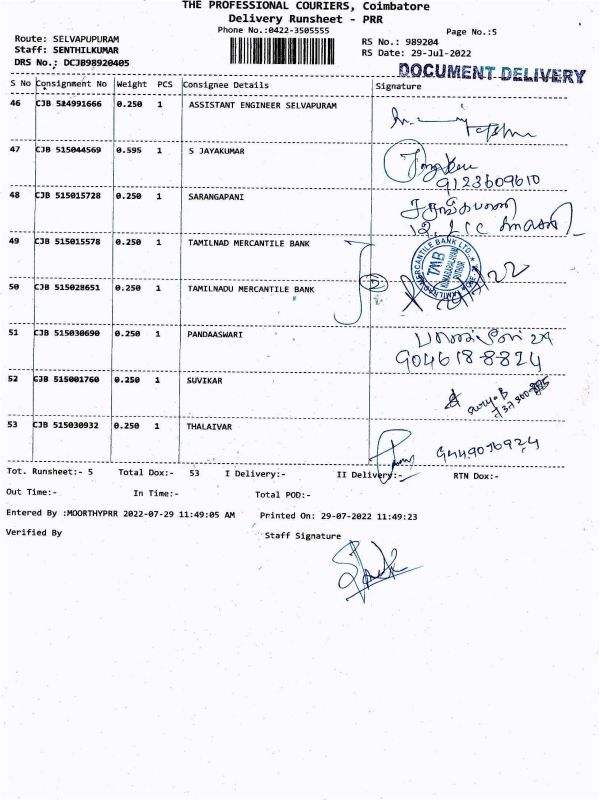 THE PROFESSIONAL COURIERS, Coimbatore
Delivery Runsheet - PRR
Phone No.:0422-3505555
Page No.:5
Route: SELVAPUPURAM
RS No.: 989204
Staff: SENTHILKUMAR
RS Date: 29-Jul-2022
DRS No.: DCJB98920405
DOCUMENT DELIVERY
S No Consignment No Weight PCS Consignee Details Signature
46 CJB 524991666 0.250 1 ASSISTANT ENGINEER SELVAPURAM
47 CJB 515044569 0.595 1 S JAYAKUMAR
9123609610
48 CJB 515015728 0.250 1 SARANGAPANI
சாரங்கபாணி
12, LIC காலனி
49 CJB 515015578 0.250 1 TAMILNAD MERCANTILE BANK
TMB
50 CJB 515028651 0.250 1 TAMILNADU MERCANTILE BANK
2
51 CJB 515030690 0.250 1 PANDAASWARI
904618-8824
52 CJB 515001760 0.250 1 SUVIKAR
53 CJB 515030932 0.250 1 THALAIVAR
9449076924
Tot. Runsheet:- 5 Total Dox:- 53 I Delivery:- II Delivery:- RTN Dox:-
Out Time:- In Time:- Total POD:-
Entered By :MOORTHYPRR 2022-07-29 11:49:05 AM Printed On: 29-07-2022 11:49:23
Verified By Staff Signature